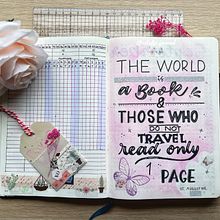 THE WORLD
is
a Book
&
THOSE WHO
DO NOT
TRAVEL
read only
1
PAGE